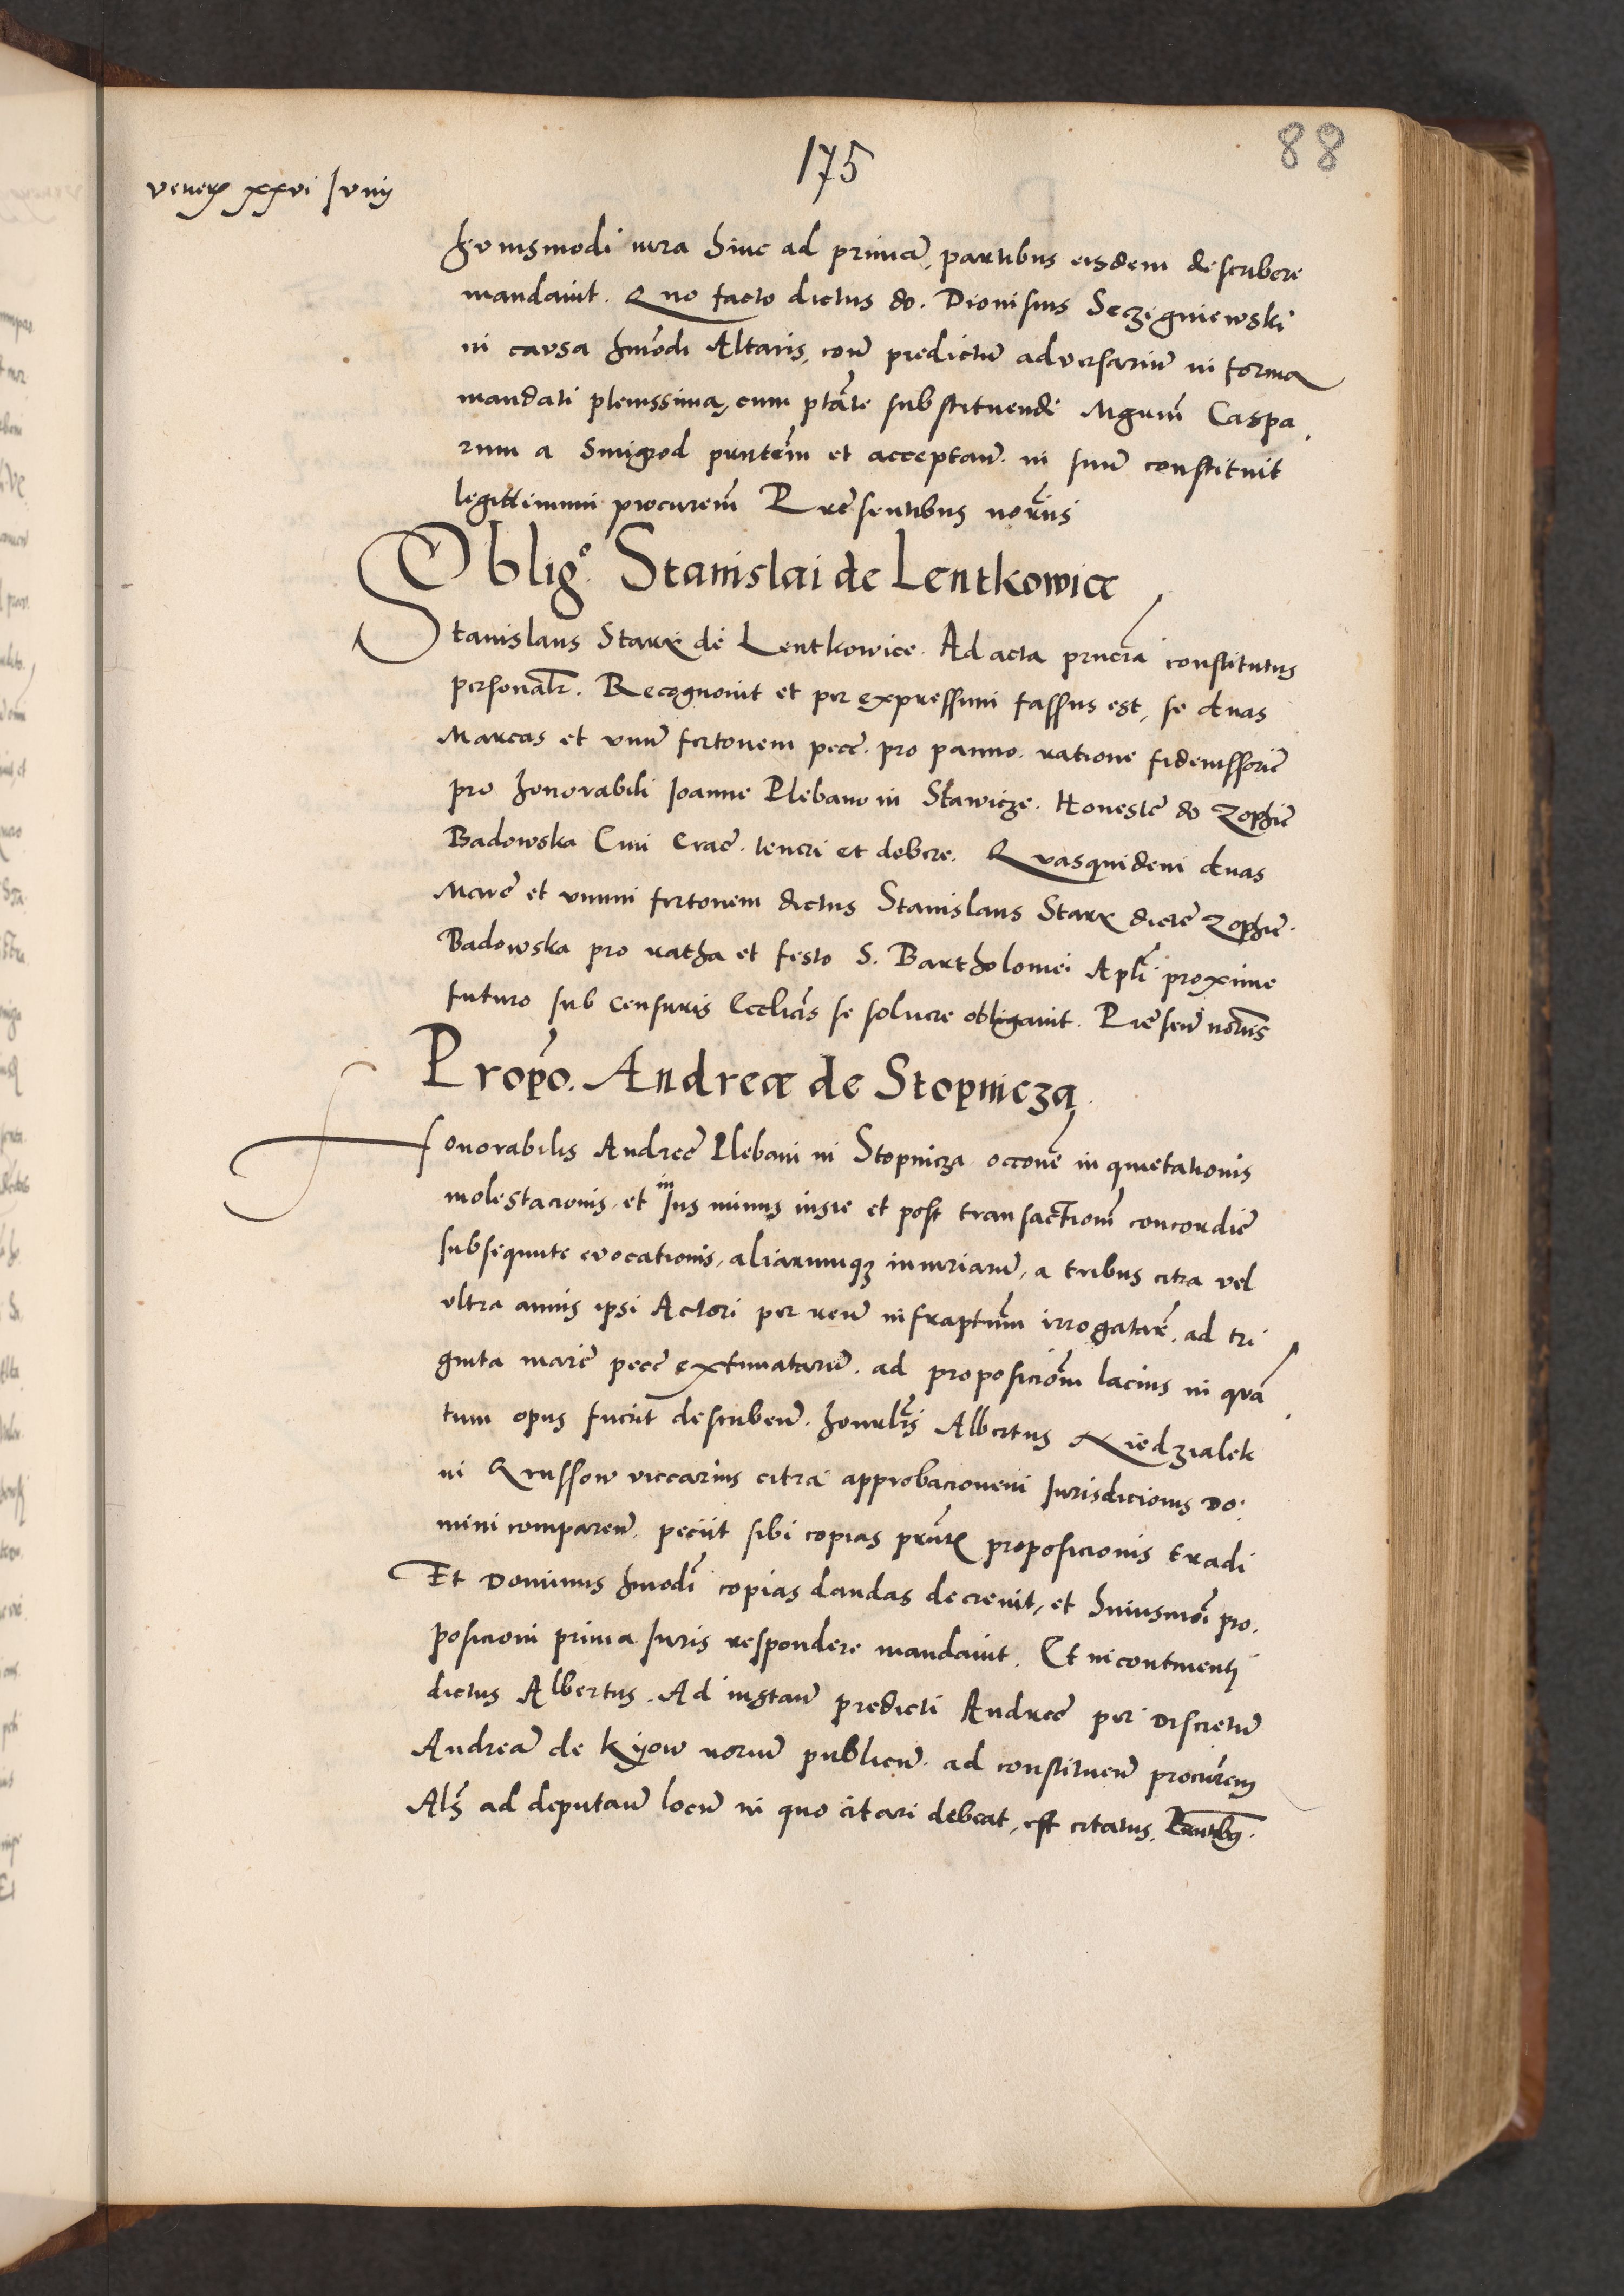 175
88
veneris xxvi Junij
huiusmodi iura hinc ad primam, partibus eisdem describere
mandavit. Quo facto dictus do. Dionisius Seczigniewski
in causa hmodi Altaris, contra predictum adversarium in forma
mandati plenissima, cum ptate substituendi Mgrum Caspa
rum a Smigrod pntem et acceptan. in suum constituit
legittimum procurem Presentibus notriis
Oblig. Stanislai de Lentkowice
Stanislaus Starx de Lentkowice. Ad acta pncia constitutus
personalr. Recognovit et per expressum fassus est, se duas
Marcas et unum fertonem pecc. pro panno. ratione fideiussorie
pro honorabili Joanne Plebano in Slawicze. Honeste do Zophie
Badowska Civi Crac. teneri et debere. Quasquidem duas
Marc et unum fertonem dictus Stanislaus Starx dicte Zophie
Badowska pro ratha et festo S. Bartholomei Apli proxime
futuro sub censuris Ecclicis se soluere obligavit. Presen notriis
Propo. Andreæ de Stopnicza
Honorabilis Andree Plebani in Stopnicza occone inquietationis
molestacionis et in Jus minus iuste et post transactiom concordie
subsequute evocationis, aliarumqz iniuriarum, a tribus citra vel
ultra annis ipsi Actori per reum infraptum irrogatar. ad tri
ginta marc pecc extimatarum. ad proposiciom lacius in quan
tum opus fuerit describen. honrlis Albertus Niedzialek
in Qrussow viccarius citra approbacionem Jurisdicionis Do
mini comparen. peciit sibi copias pntis proposicionis tradi
Et Dominus hmodi copias dandas decrevit, et huiusmoi pro
posicioni prima Juris respondere mandavit. Et incontinenti
dictus Albertus. Ad instan predicti Andree per Discretum
Andream de Kyow notrium publicum. ad constituen procurem
Als ad deputan locum in quo citari debeat, est citatus. Pntibus.